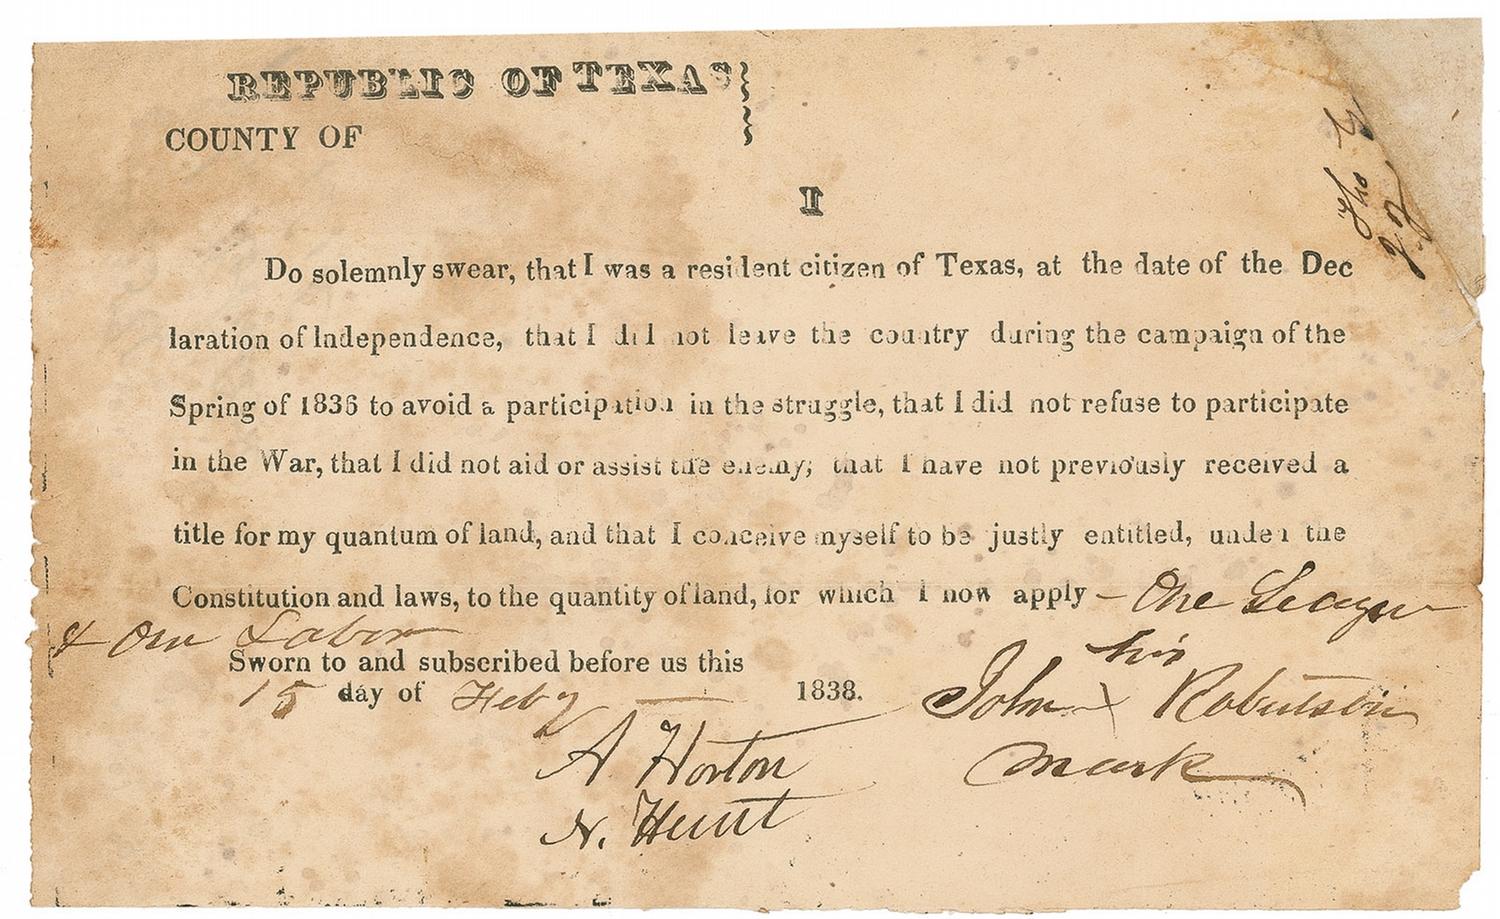 REPUBLIC OF TEXAS
COUNTY OF
I
Do solemnly swear, that I was a resident citizen of Texas, at the date of the Dec
laration of Independence, that I did not leave the country during the campaign of the
Spring of 1836 to avoid a participation in the struggle, that I did not refuse to participate
in the War, that I did not aid or assist the enemy; that I have not previously received a
title for my quantum of land, and that I conceive myself to be justly entitled, under the
Constitution and laws, to the quantity of land, for which I now apply – One League
& One Labor
Sworn to and subscribed before us this
15 day of Feby 1838.
his
John X Robertson
mark
A Horton
N. Hunt